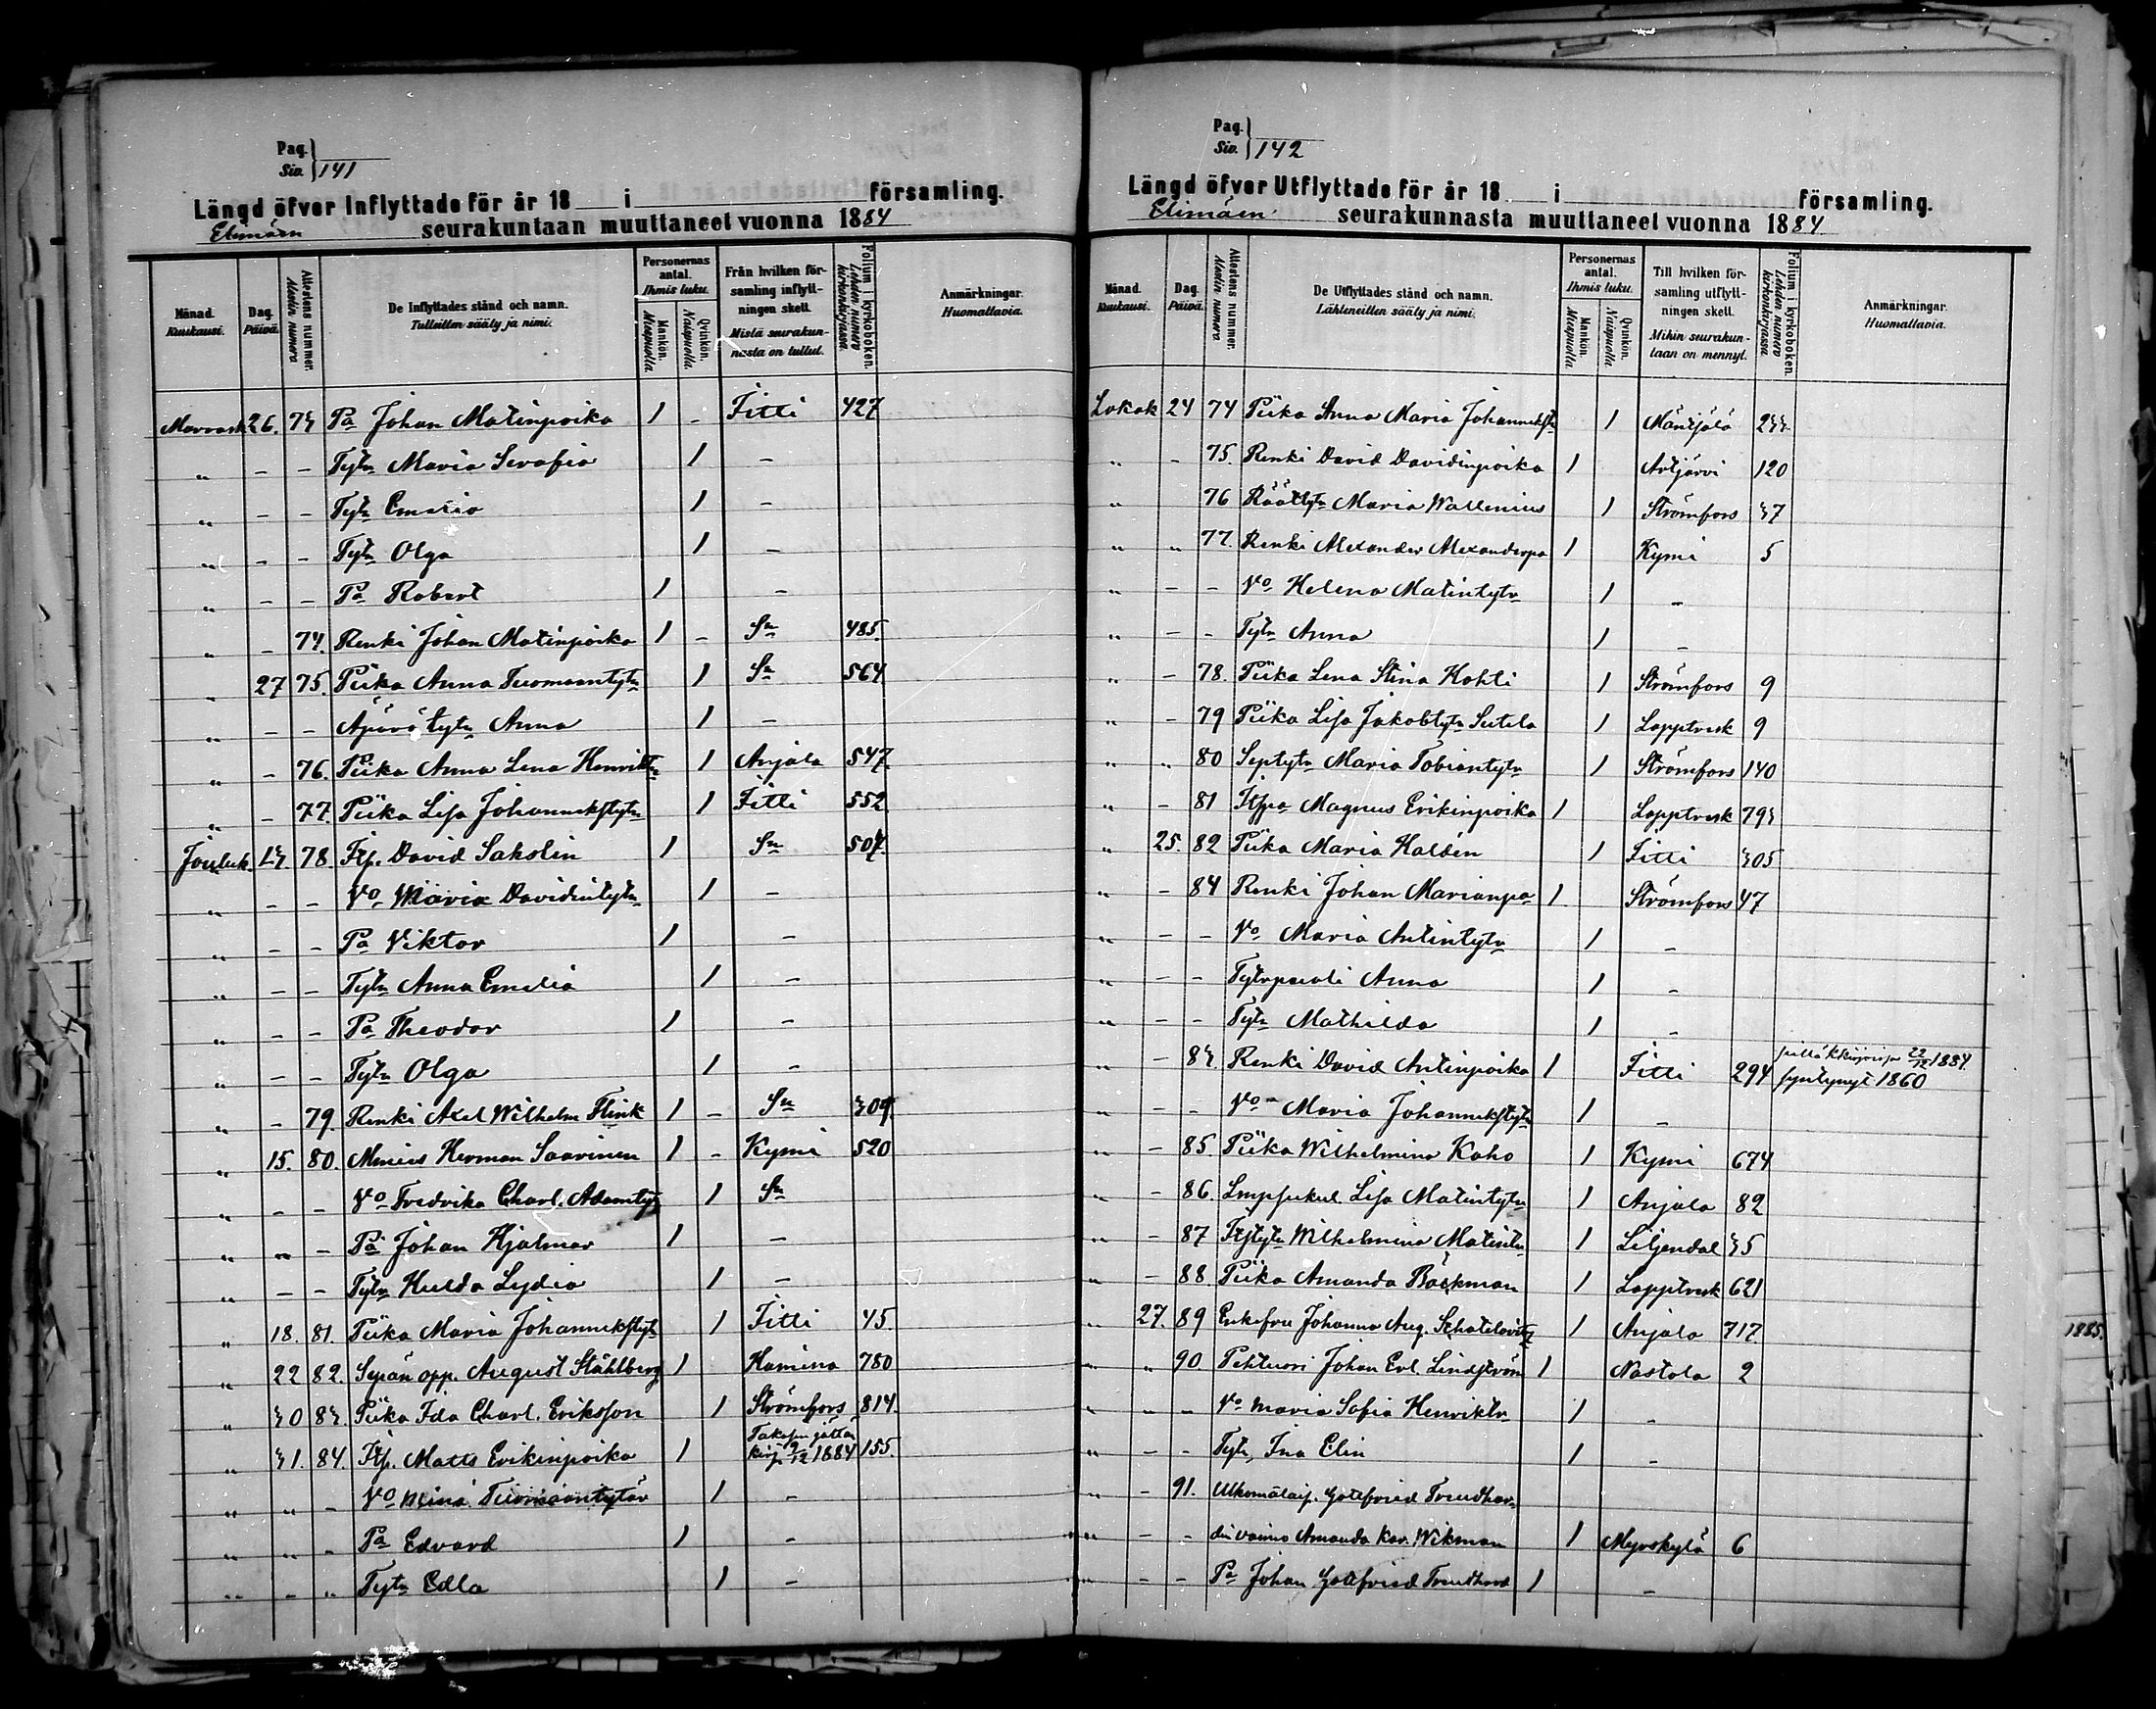 Pag.
Siv. 141
Längd öfver Inflyttade för år 18 i församling.
Elimäen seurakuntaan muuttaneet vuonna 1884
Månad. Kuukausi. Dag. Päivä. Attestens nummer. Nestin numero De Inflyttades stånd och namn. Tulleitten sääty ja nimi. Personernas antal. Ihmis luku. Mankön. Miespuolia Qvinkön. Naispuolia Från hvilken församling inflyttningen skett. Mistä seurakunnasta on tullut. Folium i kyrkoboken. Lehden numero kirkonkirjassa. Anmärkningar. Huomattavia.
Marrask 26. 73 Pa Johan Matinpoika 1 - Iitti 427
" - - Tytr Maria Serafia 1 -
" - - Tytr Emelia 1 -
" - - Tytr Olga 1 -
" - - Pa Robert 1 -
" - 74. Renki Johan Matinpoika 1 - Sn 485.
" 27 75. Piika Anna Tuomaantytr 1 Sn 564
" - - Äpärä tytr Anna 1 -
" - 76. Piika Anna Lena Henriktr 1 Anjala 547.
" - 77. Piika Lisa Johanneksentytr 1 Iitti 552
Jouluk. 13. 78. Itp. David Sakslin 1 Sn 507.
" - - Vo Maria Davidintytr 1 -
" - - Pa Viktor 1 -
" - - Tytr Anna Emelia 1 -
" - - Pa Theodor 1 -
" - - Tytr Olga 1 -
" - 79. Renki Axel Wilhelm Flink 1 - Sn 309
" 15. 80. Herman Saarinen 1 - Kymi 520
" - - Vo Fredrika Charl. Adamty 1 Sn
" - - Pa Johan Hjalmar 1 -
" - - Tytr Hulda Lydia 1 -
" 18. 81. Piika Maria Johannekstyt 1 Iitti 45.
" 22 82. Sepän opp. August Ståhlberg 1 Hamina 780
" 30 83. Piika Ida Charl. Eriksson 1 Strömfors 814.
" 31. 84. Itp. Matts Erikinpoika 1 kirj. 9/12 1884 155.
" " - Vo Mina Tuomaantytär 1 -
" " - Pa Edvard 1 -
" - " Tytr Edla 1 -
Pag.
Siv. 142
Längd öfver Utflyttade för år 18 i församling.
Elimäen seurakunnasta muuttaneet vuonna 1884
Månad. Kuukausi. Dag. Päivä. Attestens nummer. Nestin numero De Utflyttades stånd och namn. Lähteneitten sääty ja nimi. Personernas antal. Ihmis luku. Mankön. Miespuolia Qvinkön. Naispuolia Till hvilken församling utflyttningen skett. Mihin seurakuntaan on mennyt. Folium i kyrkoboken. Lehden numero kirkonkirjassa. Anmärkningar. Huomattavia.
Lokak 24 74 Piika Anna Maria Johannekstr 1 Mäntjälä 233
" - 75. Renki David Davidinpoika 1 Artjärvi 120
" 76 Räättytr Maria Wallenius 1 Strömfors 37
" " 77. Renki Alexander Alexanderpa 1 Kymi 5
" - - Vo Helena Matintytr 1 -
" - - Tytr Anna 1 -
" - 78. Piika Lena Stina Kohti 1 Strömfors 9
" - 79 Piika Lisa Jakobtytr Seitela 1 Lapptresk 9
" " 80 Septytr Maria Tobiantytr 1 Strömfors 140
" - 81 Itspa Magnus Erikinpoika 1 Lapptresk 793
" 25. 82 Piika Maria Haldén 1 Iitti 305
" - 84 Renki Johan Marianpa 1 Strömfors 47
" - - Vo Maria Antintytr 1 -
" - - Tytärpuoli Anna 1 -
" - - Tytr Mathilda 1 -
" - 83. Renki David Antinpoika 1 Iitti 294 22/12 1884. syntynyt 1860
" - - Vo Maria Johannekstytr 1 -
" - 85. Piika Wilhelmina Kaho 1 Kymi 674
" - 86. Lisa Matintytr 1 Anjala 82
" - 87 Itstytr Wilhelmina Matintr 1 Liljendal 35
" - 88 Piika Amanda Bäckman 1 Lapptresk 621
" 27. 89 Enkefru Johanna Aug. Schatelowitz 1 Anjala 717.
" " 90 Pehtuori Johan Evl. Lindström 1 Nastola 2
" - - Vo Maria Sofia Henriktr 1 -
" - - Tytr Ina Elin 1 -
" - 91. Ulkomalaisp. Gottfried
" - - vaimo Amanda Kar. Wikman 1 Myrskylä 6
" - - Pa Johan Gottfried 1 -
1885.